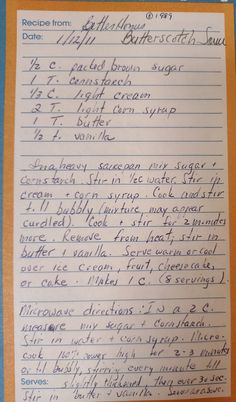 © 1989
Recipe from: Better Homes
Date: 1/12/11 Butterscotch Sauce
1/2 C. packed brown sugar
1 T. cornstarch
1/3 C. light cream
2 T. light corn syrup
1 T. butter
1/2 t. vanilla
In a heavy saucepan mix sugar +
cornstarch. Stir in 1/4 c water. Stir in
cream + corn syrup. Cook and stir
till bubbly (mixture may appear
curdled). Cook + stir for 2 minutes
more. Remove from heat; stir in
butter + vanilla. Serve warm or cool
over ice cream, fruit, cheesecake,
or cake. Makes 1 C. (8 servings).
Microwave directions: In a 2 C.
measure mix sugar + cornstarch.
Stir in water + corn syrup. Micro-
cook 100% power high for 2-3 minutes
or til bubbly, stirring every minute till
Serves: slightly thickened, then every 30 sec.
Stir in butter + vanilla. Serve as above.